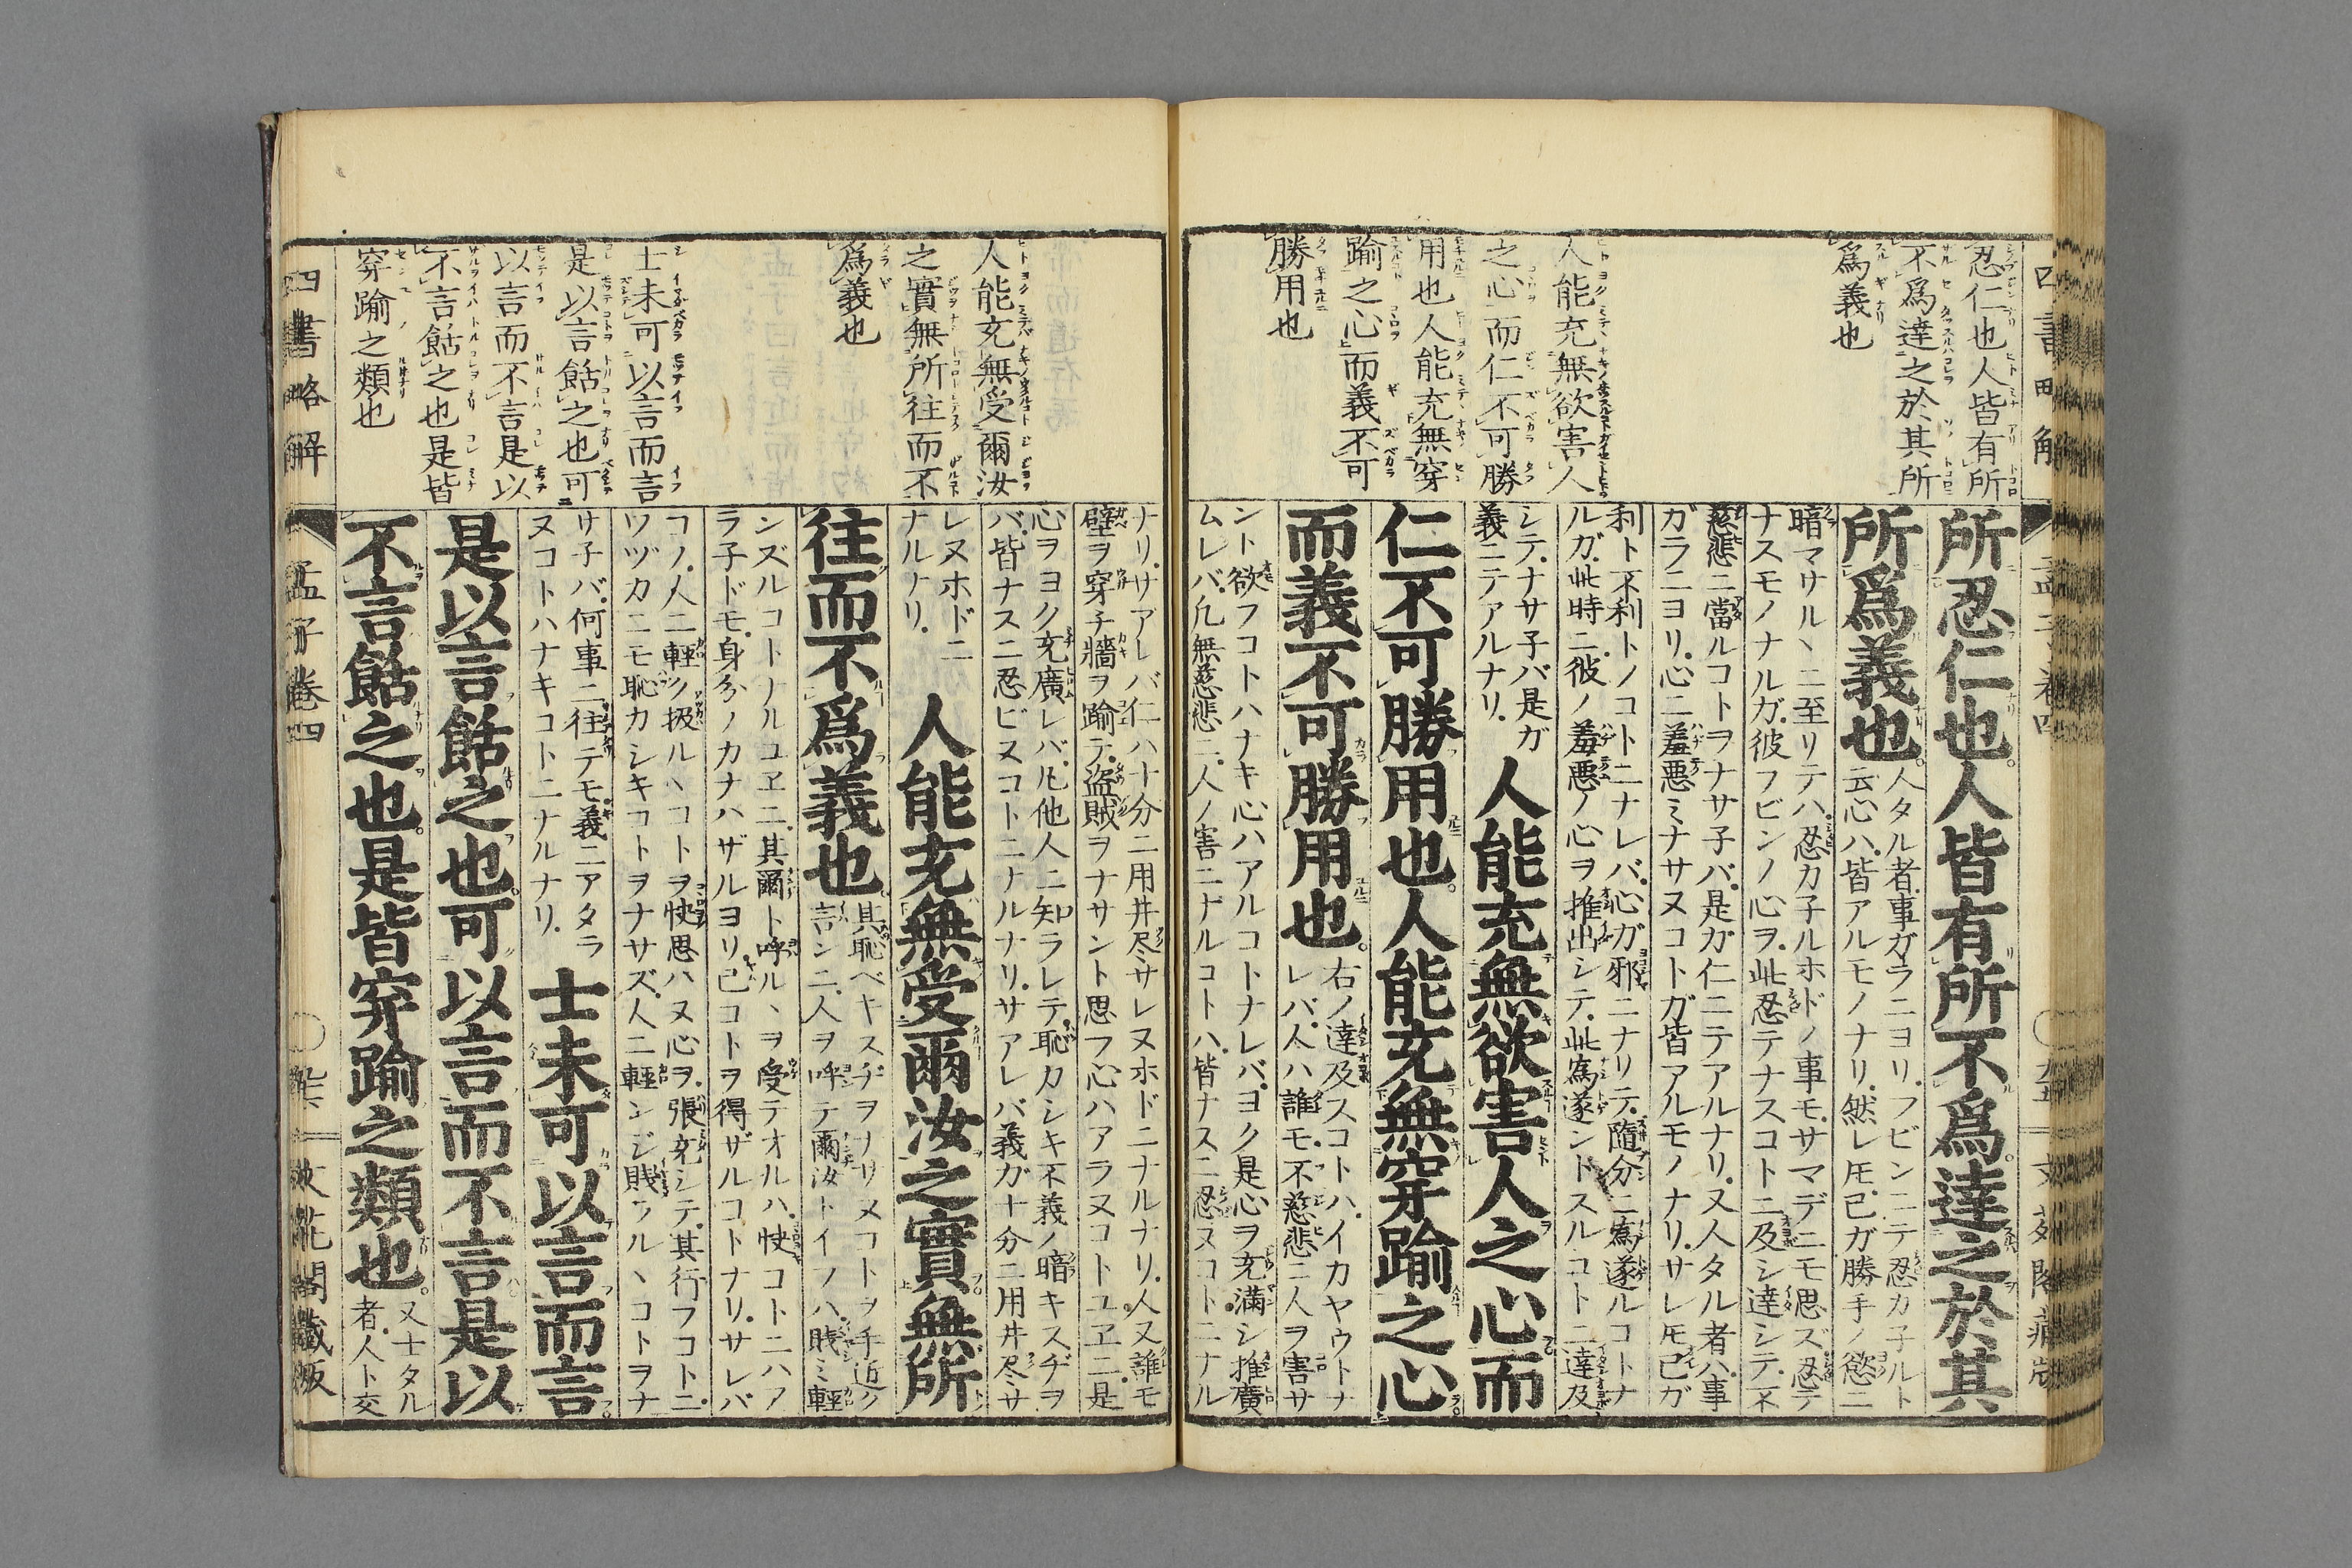 忍仁也人皆有所
不爲達之於其所
爲義也
人能充無欲害人
之心而仁不可勝
用也人能充無穿
踰之心而義不可
勝用也
所忍仁也。人皆有所不爲。達之於其
所爲義也。
人タル者ハ事ガラニヨリ.フビンニテ忍カ子ルト
云心ハ.皆アルモノナリ.然レ𪜈.己ガ勝手ノ慾ニ
暗マサルヽニ至リテハ.忍カ子ルホドノ事モ.サマデニモ思ズ忍テ
ナスモノナルガ.彼フビンノ心ヲ.此忍テナスコトニ及シ達シテ.不
慈悲ニ當ルコトヲナサ子バ.是ガ仁ニテアルナリ.又人タル者ハ事
ガラニヨリ.心ニ羞悪ミナサヌコトガ皆アルモノナリ.サレ𪜈己ガ
利ト不利トノコトニナレバ.心ガ邪ニナリテ.隨分ニ爲遂ルコトナ
ルガ.此時ニ彼ノ羞悪ノ心ヲ推出シテ.此爲遂ントスルコトニ達及
シテ.ナサ子バ是ガ
義ニテアルナリ.
人能充無欲害人之心而
仁不可勝用也。人能充無穿踰之心。
而義不可勝用也。
右ノ達及スコトハ.イカヤウトナ
レバ.人ハ誰モ.不慈悲ニ人ヲ害サ
ント欲フコトハナキ心ハアルコトナレバ.ヨク是心ヲ充滿シ推廣
ムレバ.凡無慈悲ニ.人ノ害ニナルコトハ.皆ナスニ忍ヌコトニナル
四書略解
孟子卷四
人能充無受爾汝
之實無所往而不
爲義也
士未可以言而言
是以言餂之也可
以言而不言是以
不言餂之也是皆
穿踰之類也
ナリ.サアレバ仁ハ十分ニ用井尽サレヌホドニナルナリ.人又誰モ
壁ヲ穿チ牆ヲ踰テ.盗賊ヲナサント思フ心ハアラヌコトユヱニ.是
心ヲヨク充廣レバ.凡他人ニ知ラレテ.恥カシキ不義ノ暗キスヂヲ
バ.皆ナスニ忍ビヌコトニナルナリ.サアレバ義ガ十分ニ用井尽サ
レヌホドニ
ナルナリ.
人能充無受爾汝之實無所
往而不爲義也。
其恥ベキスヂヲナリヌコトヲ手近ク
言ンニ.人ヲ呼テ爾汝トイフハ.賎ミ輕
ンズルコトナルユヱニ.其爾ト呼ルヽヲ受テオルハ.快コトニハア
ラ子ドモ.身分ノカナハザルヨリ已コトヲ得ザルコトナリ.サレバ
コノ人ニ輕ク扱ルヽコトヲ快思ハヌ心ヲ.張充シテ.其行フコトニ.
ツヅカニモ恥カシキコトヲナサズ.人ニ輕ンジ賎ラルヽコトヲナ
サ子バ.何事ニ往テモ.義ニアタラ
ヌコトハナキコトニナルナリ.
士未可以言而言。
是以言餂之也。可以言而不言。是以
不言餂之也。是皆穿踰之類也。
又士タル
者.人ト交